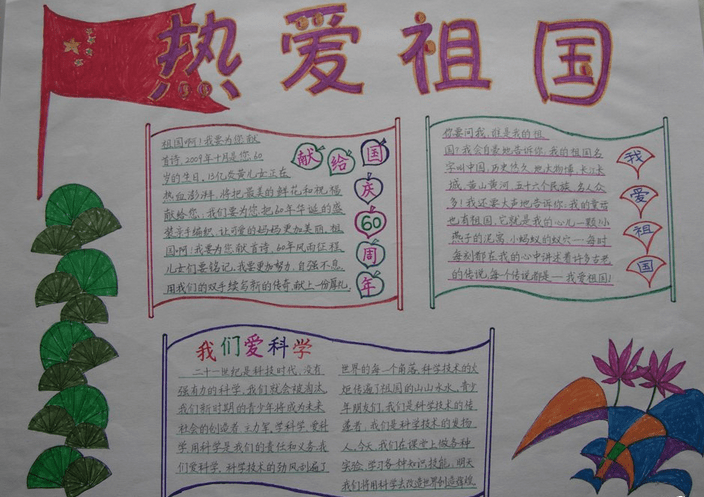 热爱祖国
祖国啊!我要为您献
首诗。2009年十月是您60
岁的生日,13亿炎黄儿女正在
热血澎湃,将把最美的鲜花和祝福
献给您;我们要为您把60年华诞的盛
装亲手编织,让可爱的妈妈更加美丽。祖
国啊!我要为您献首诗。60年风雨征程
儿女们要铭记,我要更加努力,自强不息
用我们的双手续写新的传奇,献上一份厚礼。
献给国庆60周年
你要问我,谁是我的祖
国?我会自豪地告诉你,我的祖国名
字叫中国,历史悠久,地大物博,长江长
城,黄山黄河,五十六个民族,名人众
多!我还要大声地告诉你:我的童蓝
也有祖国,它就是我的心儿一颗!小
燕子的泥窝,小蚂蚁的蚁穴……每时
每刻都在我的心中讲述着许多古老
的传说,每个传说都是……我爱祖国!
我爱祖国
我们爱科学
二十一世纪是科技时代,没有
强有力的科学,我们就会被淘汰。
我们新时期的青少年将成为未来
社会的创造者、主力军。学科学、爱科
学、用科学是我们的责任和义务。我
们爱科学,科学技术的劲风刮遍了
世界的每一个角落,科学技术的火
炬传遍了祖国的山山水水。青少
年朋友们,我们是科学技术的传
播者,我们是科学技术的发扬
人。今天,我们在课堂上做各种
实验,学习各种知识技能,明天
我们将用科学去改造世界创造辉煌